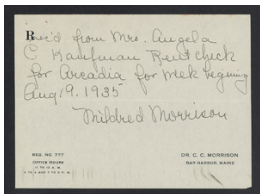 Rec'd from Mrs. Angela
C Kaufman Rent check
for Arcadia for week begining
Aug 19. 1935
Mildred Morrison
REG. NO. 777
OFFICE HOURS
DR. C. C. MORRISON
BAR HARBOR, MAINE